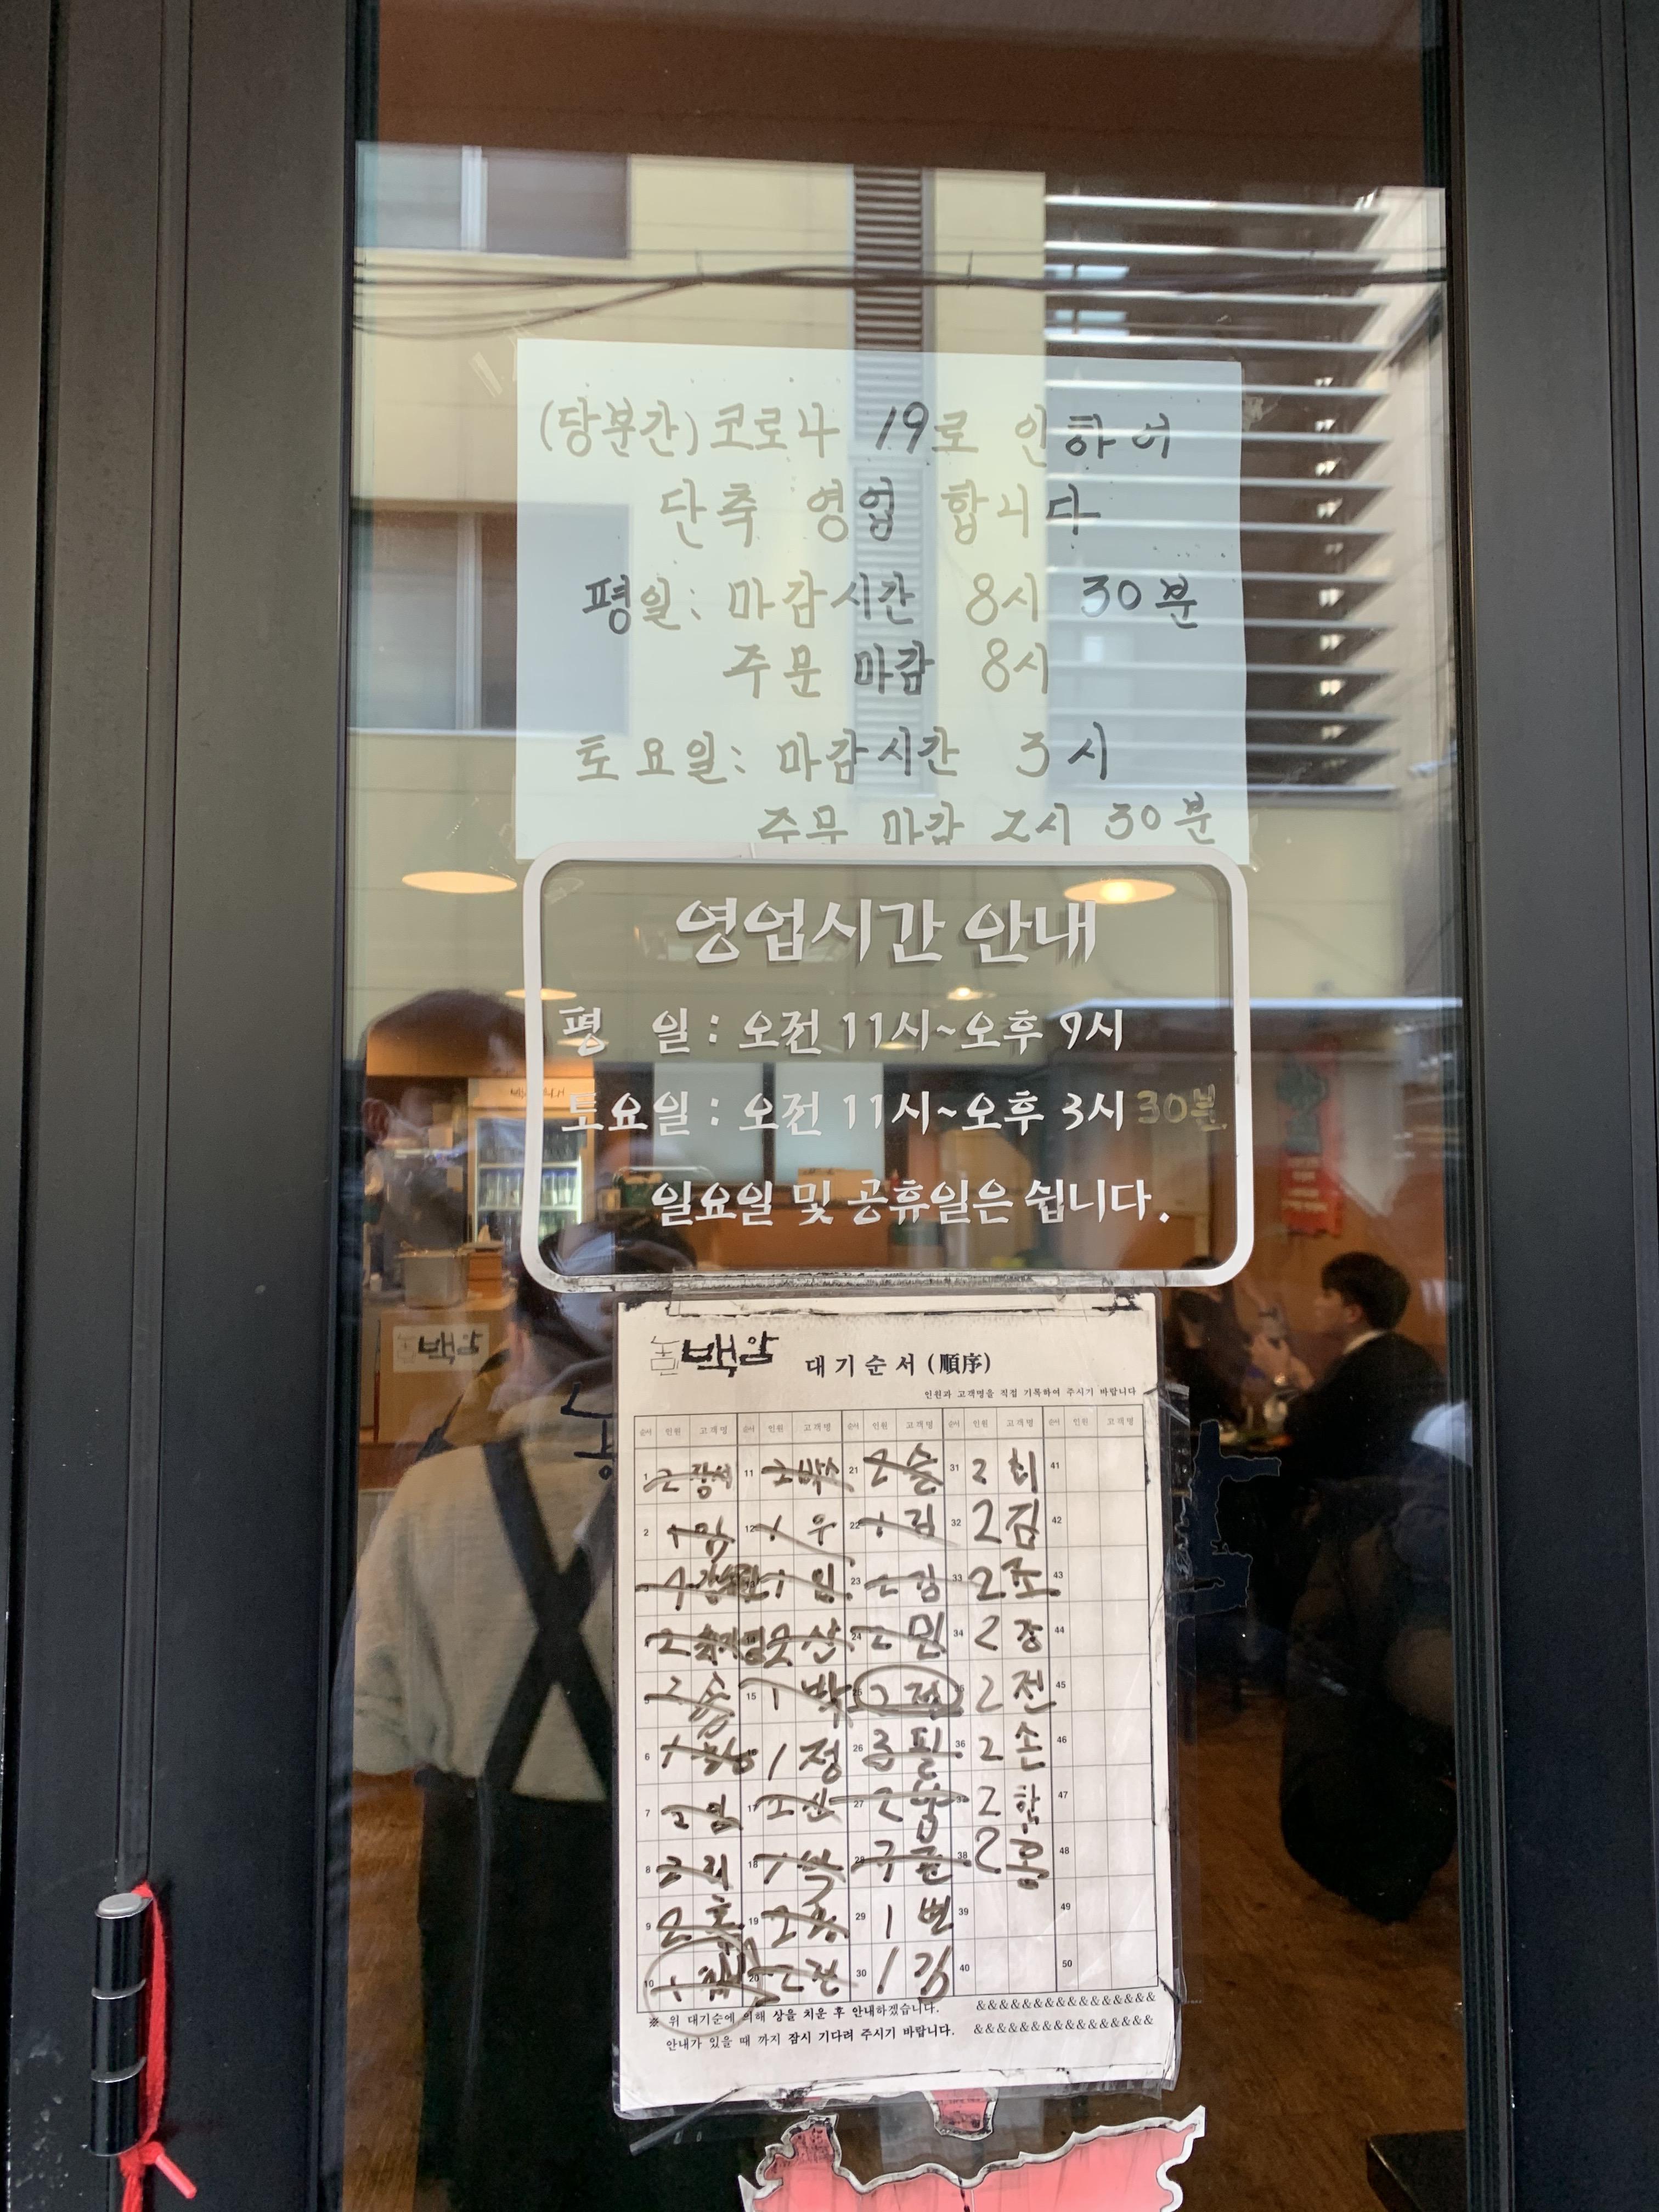 (당분간) 코로나 19로 인하여
단축 영업 합니다
평일: 마감시간 8시 30분
주문 마감 8시
토요일: 마감시간 3시
주문 마감 2시 30분
영업시간 안내
평 일 : 오전 11시~오후 9시
토요일 : 오전 11시~오후 3시 30분
일요일 및 공휴일은 쉽니다.
농민백암 대기순서(順序)
인원과 고객명을 직접 기록하여 주시기 바랍니다
순서 인원 고객명 순서 인원 고객명 순서 인원 고객명 순서 인원 고객명 순서 인원 고객명
1 2 11 2 21 2 31 2 최 41
2 1 임 12 1 우 22 1 김 32 2 김 42
1 임 23 2 김 33 2 조 43
2 24 2 민 34 2 장 44
2 15 1 박 2 정 2 전 45
6 1 1 정 26 3 필 36 2 손 46
7 2 임 17 2 신 27 2 2 함 47
8 2 리 18 1 박 28 38 2 홍 48
9 2 19 2 29 1 변 39 49
10 1 20 2 30 1 김 40 50
※ 위 대기순에 의해 상을 치운 후 안내하겠습니다. &&&&&&&&&&&&&&&&
안내가 있을 때 까지 잠시 기다려 주시기 바랍니다. &&&&&&&&&&&&&&&&